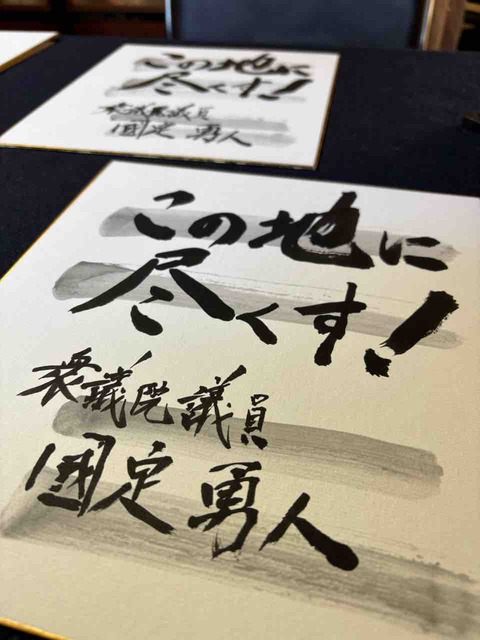 この地に
尽くす!
衆議院議員
国定 勇人
この地に
尽くす!
衆議院議員
国定 勇人